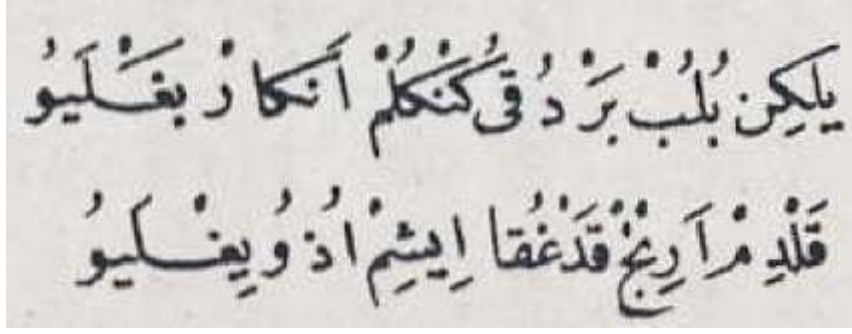 يلِكِن بُلُبْ بَرْدُقى كُنْكُلُمْ اَنكارْ بغَـْـلَيوُ
قَلْدِمْ اَرِنجْ قَذْغُقا اِيشِمْ اُذوُ يِغْـلَيوُ